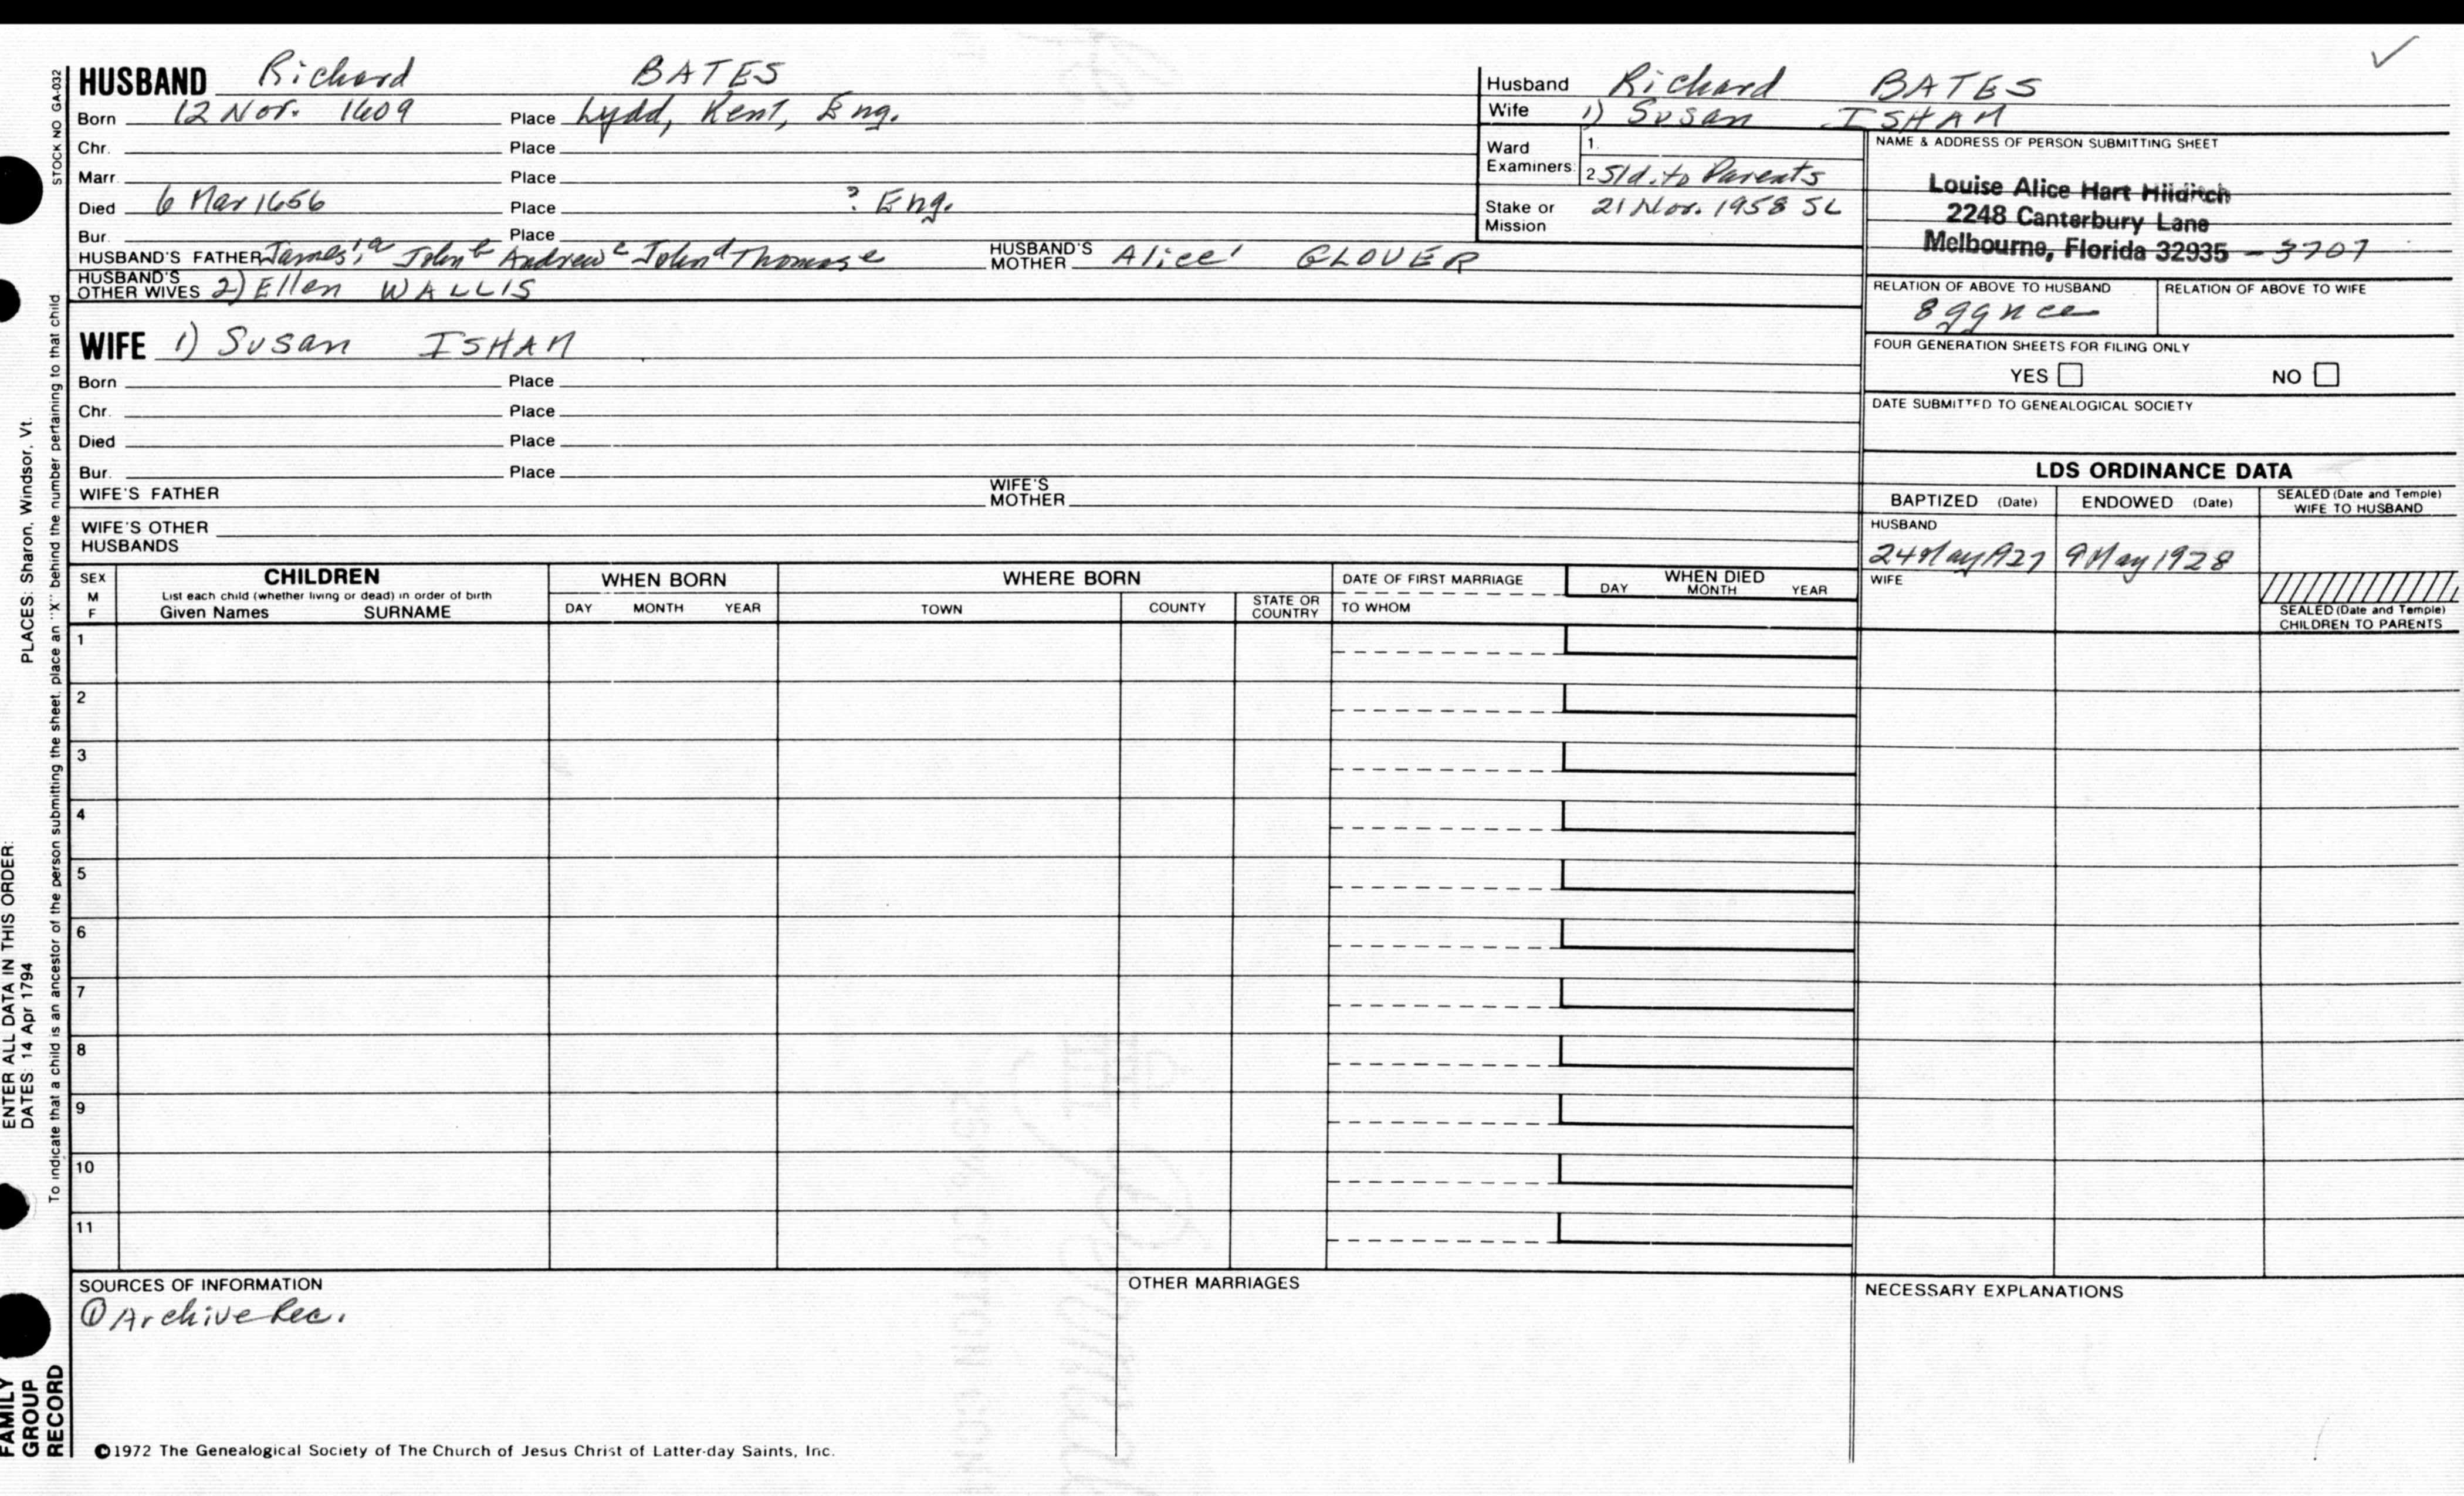 HUSBAND Richard BATES
Born 12 Nov. 1609 Place Lydd, Kent, Eng.
Chr. Place
Marr. Place
Died 6 Mar 1656 Place ? Eng.
Bur. Place
HUSBAND'S FATHER James¹,ᵃ Johnᵇ Andrewᶜ Johnᵈ Thomasᵉ HUSBAND'S MOTHER Alice' GLOVER
HUSBAND'S OTHER WIVES 2) Ellen WALLIS
WIFE 1) Susan ISHAM
Born Place
Chr. Place
Died Place
Bur. Place
WIFE'S FATHER WIFE'S MOTHER
WIFE'S OTHER HUSBANDS
Husband Richard BATES
Wife 1) Susan ISHAM
Ward Examiners: 1.
2 Sld. to Parents
Stake or Mission 21 Nov. 1958 SL
NAME & ADDRESS OF PERSON SUBMITTING SHEET
Louise Alice Hart Hilditch
2248 Canterbury Lane
Melbourne, Florida 32935 - 3707
RELATION OF ABOVE TO HUSBAND RELATION OF ABOVE TO WIFE
8 ggnce
FOUR GENERATION SHEETS FOR FILING ONLY
YES NO
DATE SUBMITTED TO GENEALOGICAL SOCIETY
LDS ORDINANCE DATA
BAPTIZED (Date) ENDOWED (Date) SEALED (Date and Temple) WIFE TO HUSBAND
HUSBAND
24 May 1927 9 May 1928
WIFE
SEALED (Date and Temple)
CHILDREN TO PARENTS
SEX M F CHILDREN WHEN BORN WHERE BORN DATE OF FIRST MARRIAGE WHEN DIED
List each child (whether living or dead) in order of birth
Given Names SURNAME DAY MONTH YEAR TOWN COUNTY STATE OR COUNTRY TO WHOM DAY MONTH YEAR
1
2
3
4
5
6
7
8
9
10
11
SOURCES OF INFORMATION OTHER MARRIAGES NECESSARY EXPLANATIONS
① Archive Rec.
©1972 The Genealogical Society of The Church of Jesus Christ of Latter-day Saints, Inc.
STOCK NO GA-032
To indicate that a child is an ancestor of the person submitting the sheet, place an "X" behind the number pertaining to that child
ENTER ALL DATA IN THIS ORDER:
DATES: 14 Apr 1794 PLACES: Sharon, Windsor, Vt.
FAMILY
GROUP
RECORD